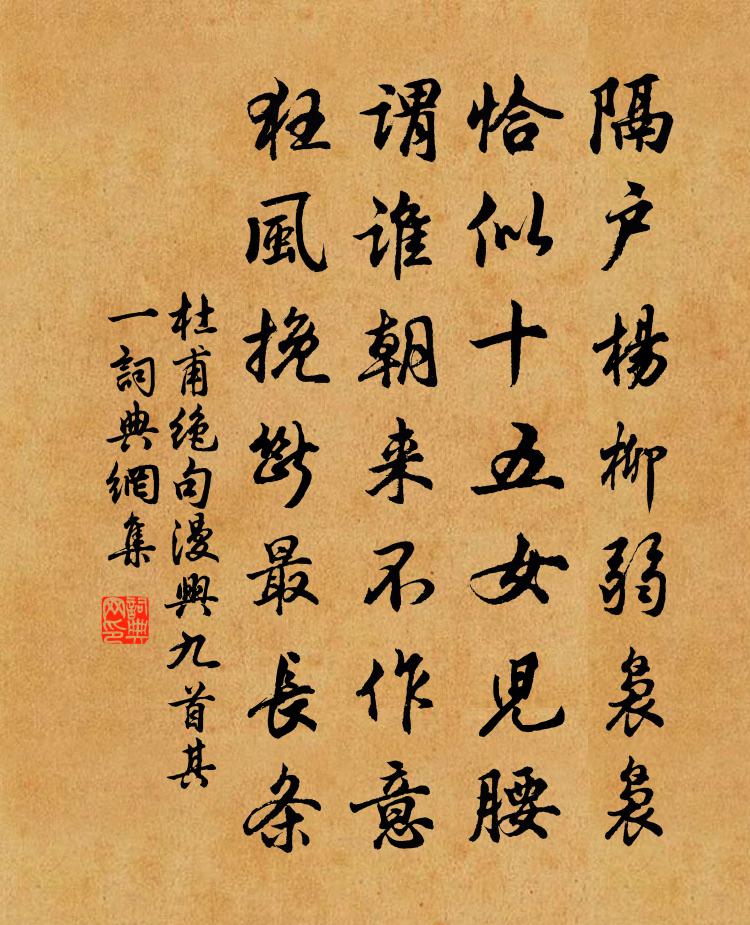 隔户楊柳弱裊裊
恰似十五女児腰
謂誰朝来不作意
狂風挽斷最長条
杜甫绝句漫興九首其
一詞典網集
詞典
网印